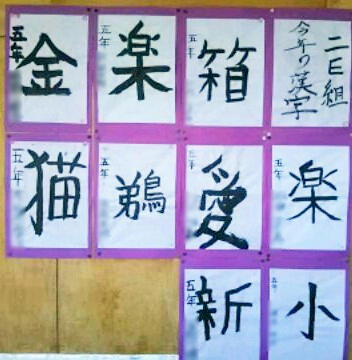 二E組
今年の漢字
箱
五年
楽
五年
金
五年
楽
五年
愛
五年
鵜
五年
猫
五年
小
五年
新
五年